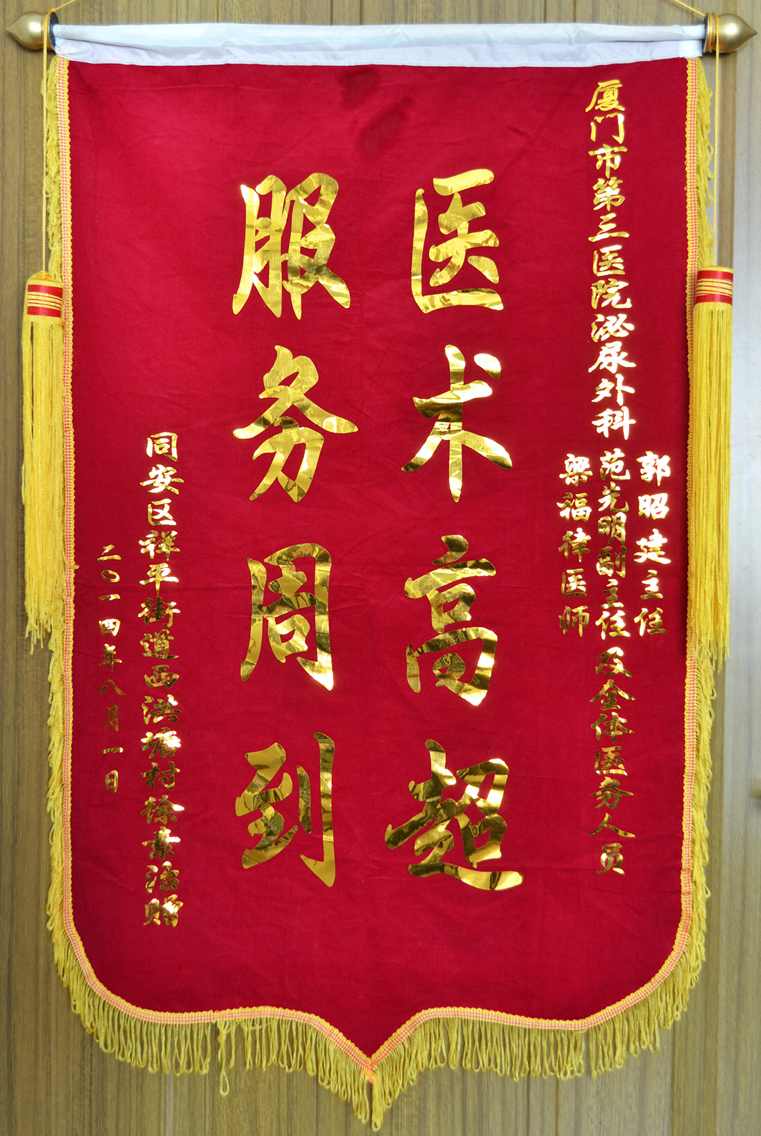 厦门市第三医院泌尿外科
郭昭建主任
范光明副主任
梁福律医师
及全体医务人员
医术高超
服务周到
同安区祥平街道西洪塘村徐清海赐
二〇一四年八月一日